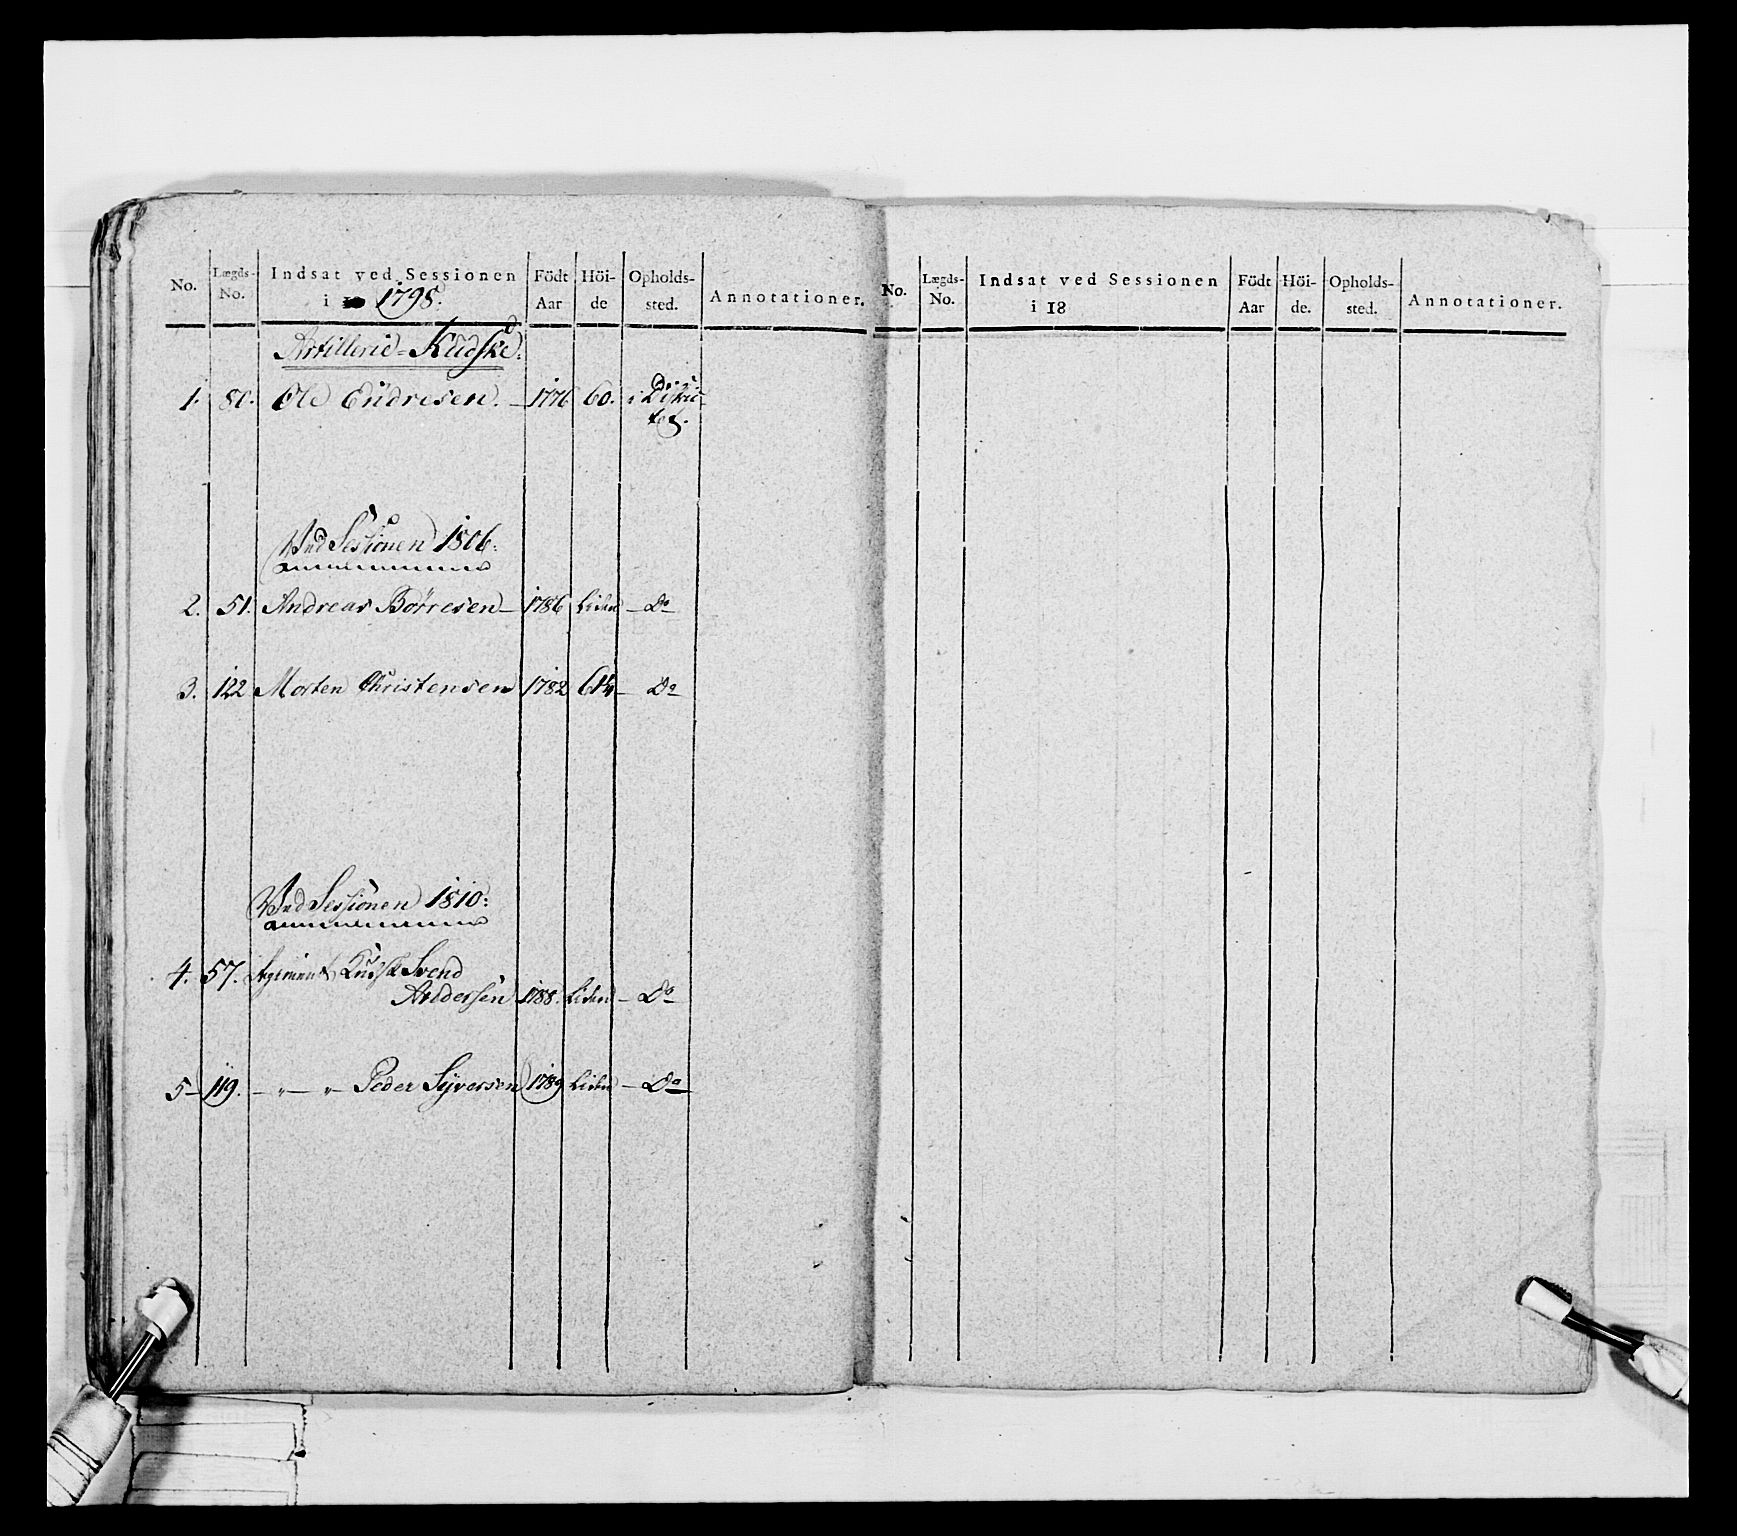 No. Lægds-No. Indsat ved Sessionen i 1798. Födt Aar Höi-de Opholds-sted. Annotationer.
Artillerie-Kudske.
1. 80. Ole Endresen. – 1776 60. i Distric-
tet.
Ved Sessionen 1806.
2. 51. Andreas Börresen – 1786 Liden – Do
3. 122 Morten Christensen 1782 61¼ – Do
Ved Sessionen 1810:
4. 57. Kudsk Svend
Andersen 1788. Liden – Do
5 – 119. – " – " – Peder Syversen 1789 Liden – Do
No. Lægds-No. Indsat ved Sessionen i 18 Födt Aar Höi-de. Opholds-sted. Annotationer.